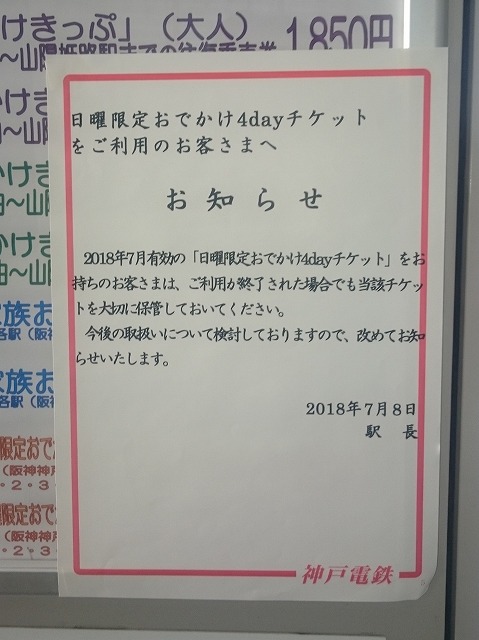 けきっぷ」（大人） 1,850円
～山陽姫路駅までの往復乗車券
日曜限定おでかけ4dayチケット
をご利用のお客さまへ
お知らせ
2018年7月有効の「日曜限定おでかけ4dayチケット」をお
持ちのお客さまは、ご利用が終了された場合でも当該チケッ
トを大切に保管しておいてください。
今後の取扱いについて検討しておりますので、改めてお知
らせいたします。
2018年7月8日
駅 長
神戸電鉄
かけき
～山陽
かけき
～山陽
かけき
～山陽
家族お
各駅（阪神
家族お
各駅（阪神
限定おでか
（阪神神戸
・2・3・
限定おでか
（阪神神戸
・2・3・